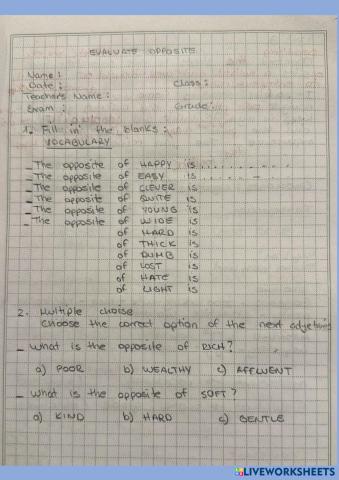 EVALUATE OPPOSITE
Name :
Date : Class :
Teacher's Name :
Exam : Grade :
1. Fill in the blanks :
VOCABULARY
_ The opposite of HAPPY is ..........
_ The opposite of EASY is ..........
_ The opposite of CLEVER is
_ The opposite of QUITE is
_ The opposite of YOUNG is
_ The opposite of WIDE is
of HARD is
of THICK is
of DUMB is
of LOST is
of HATE is
of LIGHT is
2. Multiple choise
Choose the correct option of the next adjetives
_ What is the opposite of RICH?
a) POOR b) WEALTHY c) AFFLUENT
_ What is the opposite of SOFT?
a) KIND b) HARD c) GENTLE
LIVEWORKSHEETS